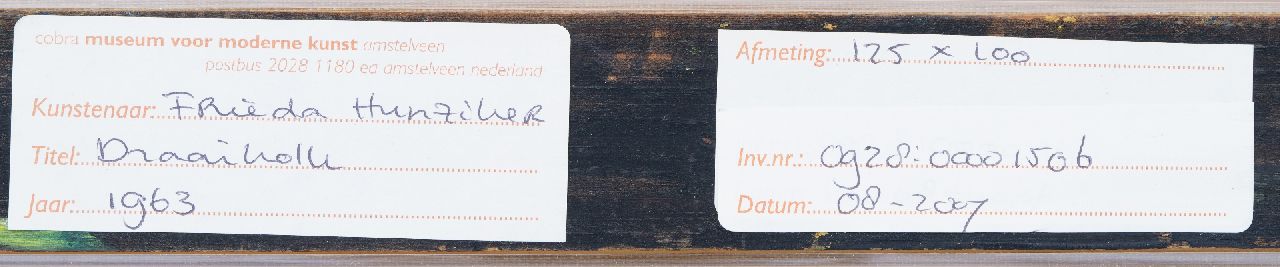 cobra museum voor moderne kunst amstelveen
postbus 2028 1180 ea amstelveen nederland
Kunstenaar: Frieda Hunziker
Titel: Draaikolk
Jaar: 1963
Afmeting: 125 x 100
Inv.nr.: 0g28:00001506
Datum: 08-2007